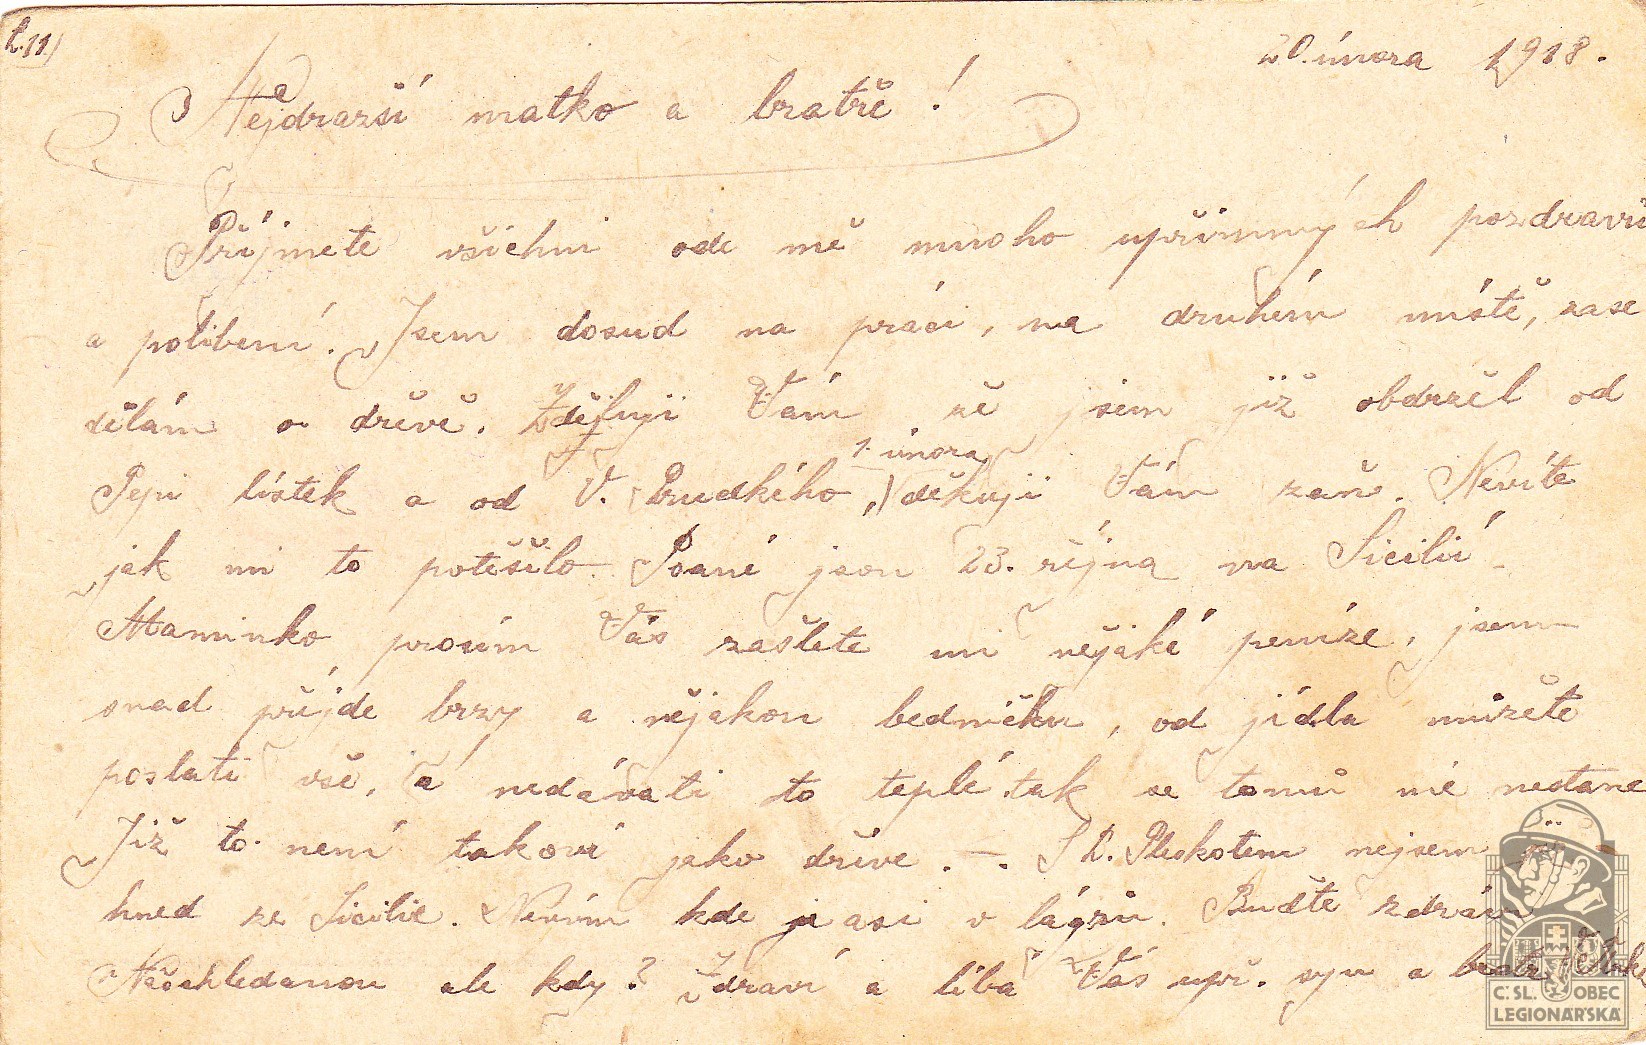 č.11.)
20. února 1918.
Nejdražší matko a bratře!
Přijmete všichni ode mě mnoho upřímných pozdravů
a políbení. Jsem dosud na práci, na druhém místě, zase
dělám o dřevě. Zděluji Vám že jsem již obdržel od
1. února
Pepi lístek a od V. Prudkého, děkuji Vám zaň. Nevíte
jak mi to potěšilo. Psané jsou 23. října na Sicilii.
Maminko prosím Vás zašlete mi nějaké peníze, jsem
snad přijde brzy a nějakou bedničku, od jídla můžete
poslati vše, a nedávati to teplé tak se tomu nic nestane
Již to není takoví jako dříve. —. S Pleskotem nejsem
hned ze Sicilie. Nevím kde je asi v lágru. Buďte zdrávi
Naschledanou ale kdy? Zdraví a líbá Vás upř. syn a bratr
Č. SL. OBEC
LEGIONÁŘSKÁ